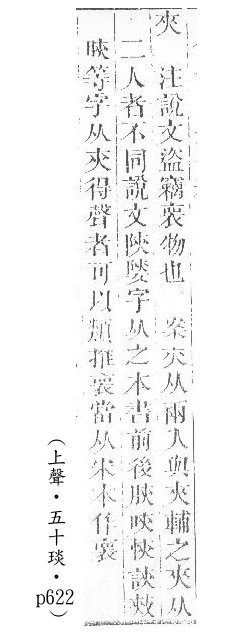 夾 注說文盜竊褱物也 案夾从兩入與夾輔之夾从
二人者不同說文陝㛍字从之本書前後脥睞悏談敥
睞等字从夾得聲者可以類推褱當从宋本作裹
（上聲・五十琰・p622）